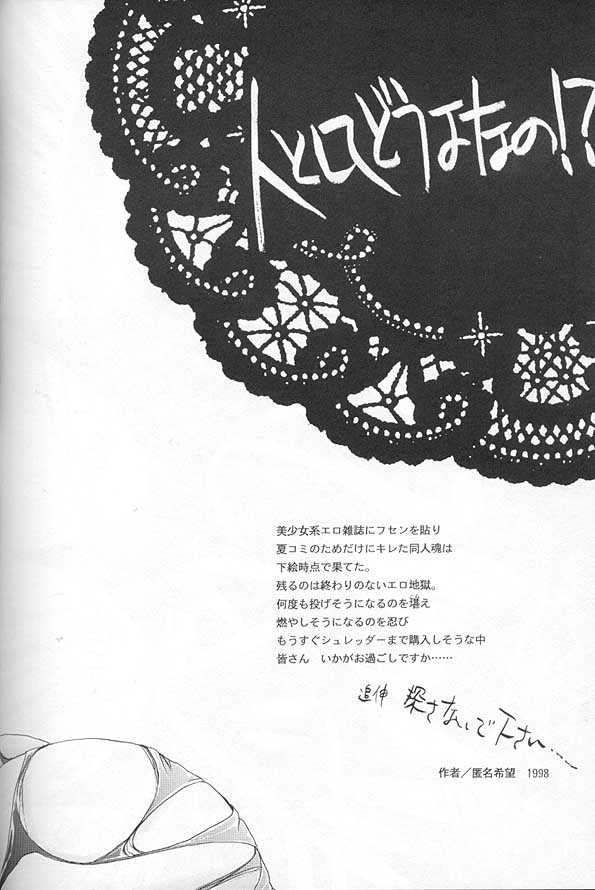 人としてどうなの!?
美少女系エロ雑誌にフセンを貼り
夏コミのためだけにキレた同人魂は
下絵時点で果てた。
残るのは終わりのないエロ地獄。
何度も投げそうになるのを堪え
燃やしそうになるのを忍び
もうすぐシュレッダーまで購入しそうな中
皆さん　いかがお過ごしですか……
追伸　探さないで下さい…
作者／匿名希望　1998